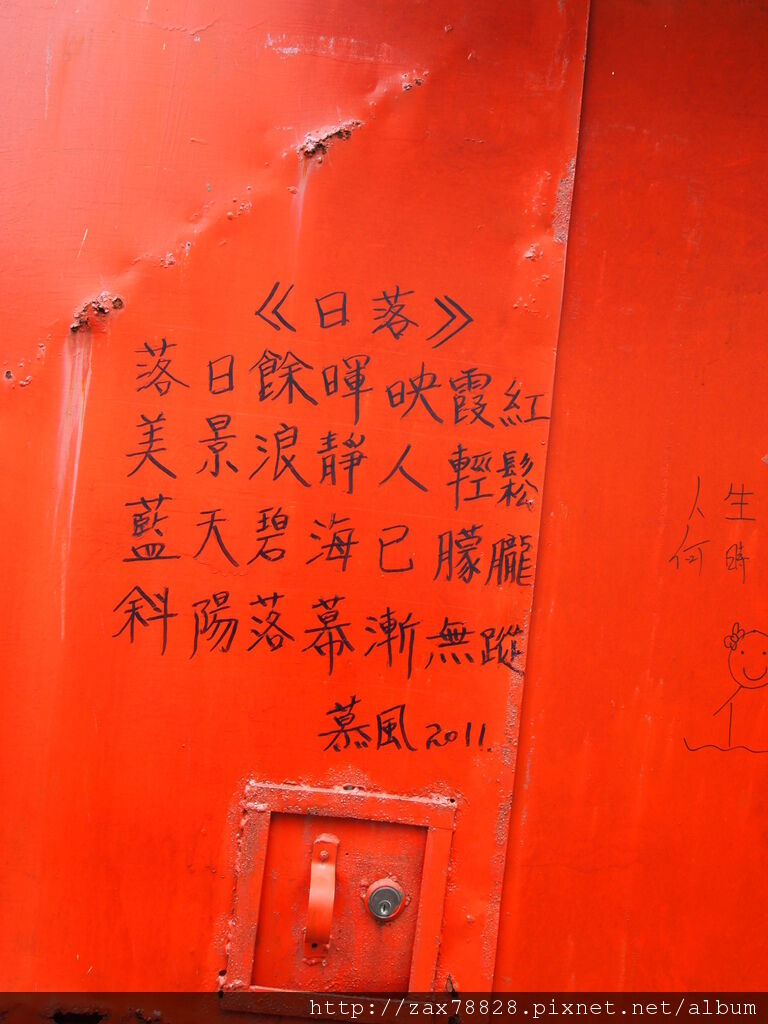 《日落》
落日餘暉映霞紅
美景浪靜人輕鬆
藍天碧海已朦朧
斜陽落幕漸無蹤
慕風2011.
人生
何時
http://zax78828.pixnet.net/album